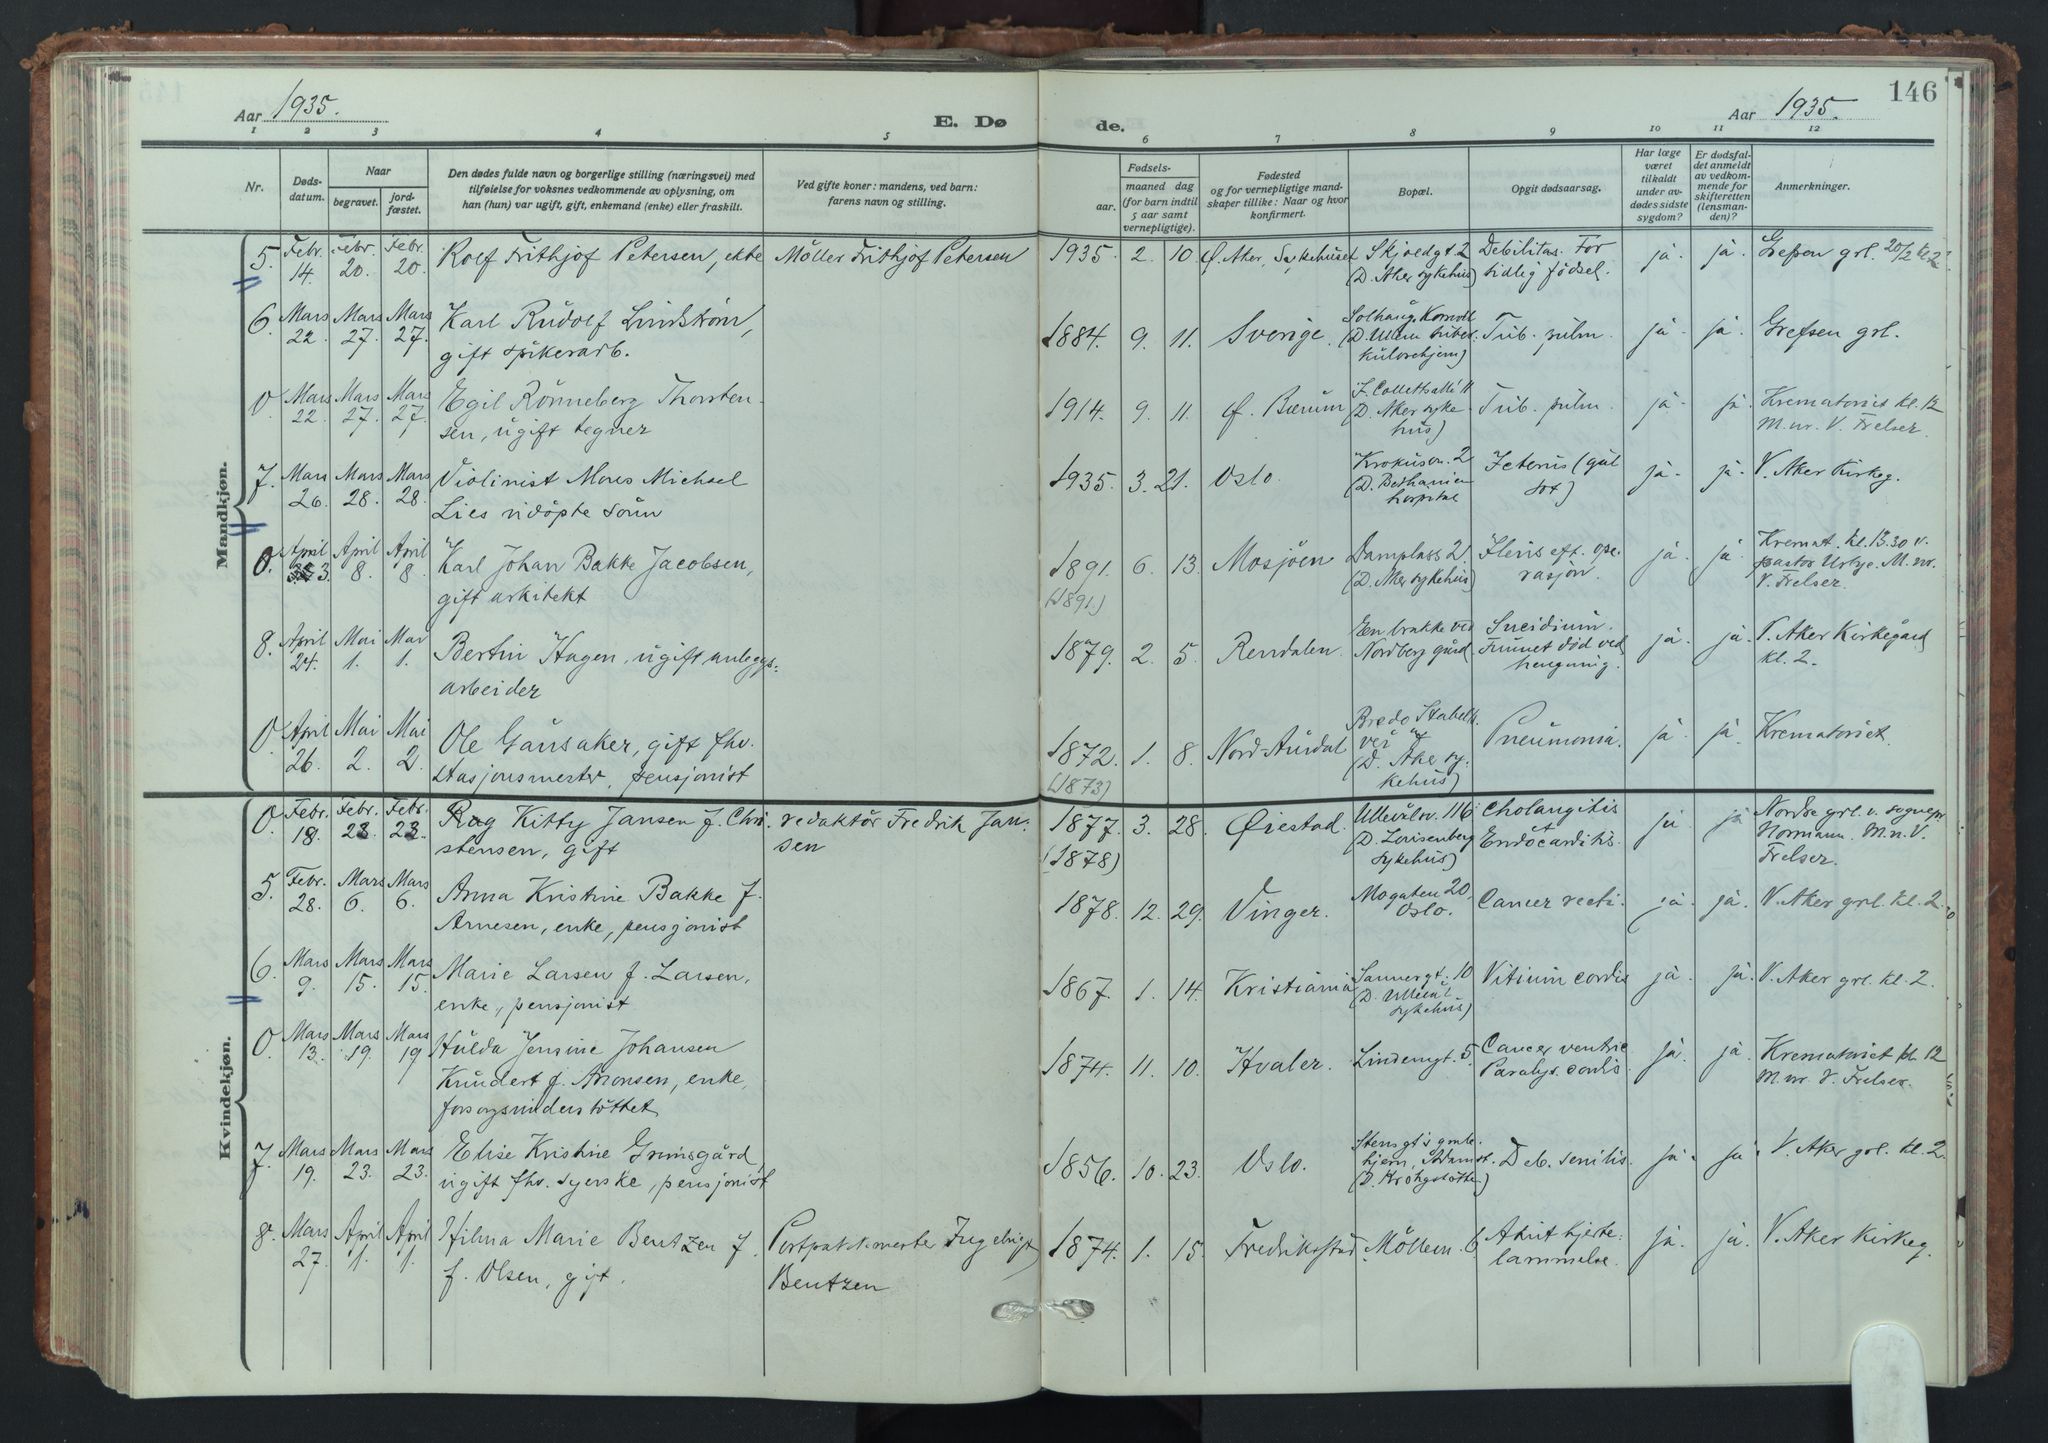 146
Aar 1935.
E. Dø
de.
Aar 1935.
1 2 3 4 5 6 7 8 9 10 11 12
Nr.
Døds-
datum.
Naar
begravet.
jord-
fæstet.
Den dødes fulde navn og borgerlige stilling (næringsvei) med
tilføielse for voksnes vedkommende av oplysning, om
han (hun) var ugift, gift, enkemand (enke) eller fraskilt.
Ved gifte koner: mandens, ved barn:
farens navn og stilling.
Fødsels-
aar.
maaned dag
(for barn indtil
5 aar samt
vernepligtige).
Fødested
og for vernepligtige mand-
skaper tillike: Naar og hvor
konfirmert.
Bopæl.
Opgit dødsaarsag.
Har læge
været
tilkaldt
under av-
dødes sidste
sygdom?
Er dødsfal-
det anmeldt
av vedkom-
mende for
skifteretten
(lensman-
den)?
Anmerkninger.
Mandkjøn.
5. Febr. 14. Febr. 20. Febr. 20. Rolf Frithjof Petersen, ekte Møller Frithjof Petersen 1935. 2. 10. Ø. Aker, Sykehuset Skjoldgt. 2 Debilitas. For ja. ja. Grefsen grl. 20/2 kl. 2
(D. Aker sykehus) tidlig fødsel.
6. Mars 22. Mars 27. Mars 27. Karl Rudolf Lindstrøm,
gift spikerarb. 1884. 9. 11. Sverige. Solhaug, (D. Ullern tuber-
kulosehjem) Tub. pulm. ja. ja. Grefsen grl.
0. Mars 22. Mars 27. Mars 27. Egil Rønneberg Thorsten-
sen, ugift tegner 1914. 9. 11. Ø. Bærum J. Collettsalle 11
(D. Aker syke
hus) Tub. pulm. ja. ja. Krematoriet kl. 12
M. nr. V. Frelser.
7. Mars 26. Mars 28. Mars 28. Violinist Mons Michael
Lies udøpte sønn 1935. 3. 21. Oslo. Krokusv. 2
(D. Bethanien
hospital Icterus (gul
sot) ja. ja. V. Aker Kirkeg.
0. April 3. April 8. April 8. Karl Johan Bakke Jacobsen,
gift arkitekt 1891. 6. 13. Mosjøen Damplass 2
(D. Aker sykehus) Ileus eft. ope-
rasjon. ja. ja. Kremat. kl. 13.30 v.
pastor M. nr.
V. Frelser.
(1891.)
8. April 24. Mai 1. Mai 1. Bertin Hagen, ugift anleggs-
arbeider 1879. 2. 5. Rendalen. En brakke ved
Nordberg gård Suicidium.
Funnet død ved
hengning. ja. ja. V. Aker Kirkegård
kl. 2.
0. April 26. Mai 2. Mai 2. Ole Gausaker, gift fhv.
stasjonsmester, pensjonist 1872. 1. 8. Nord-Aurdal Bredo Stabells
vei
(D. Aker sy-
kehus) Pneumonia. ja. ja. Krematoriet.
(1873)
Kvindekjøn.
0. Febr. 18. Febr. 23. Febr. 23. Rag Kitty Jansen f. Chri- redaktør Fredrik Jan-
stensen, gift sen 1877. 3. 28. Øiestad. Ullevålsv. 116
(D. Lovisenberg
sykehus) Cholangitis
Endocarditis. ja ja Nordre grl. v. sognepr.
Hormann. M. n. V.
Frelser.
(1878)
5. Febr. 28. Mars 6. Mars 6. Anna Kristine Bakke f.
Arnesen, enke, pensjonist 1878. 12. 29. Vinger. Mogaten 20,
Oslo. Cancer recti. ja. ja. V. Aker grl. kl. 2.
6. Mars 9. Mars 15. Mars 15. Marie Larsen f. Larsen,
enke, pensjonist 1867. 1. 14. Kristiania Sannergt. 10
(D. Ullevål
sykehus) Vitium cordis ja. ja. V. Aker grl. kl. 2.
0. Mars 13. Mars 19. Mars 19 Hulda Jensine Johansen
Kundert f. Aronsen, enke,
forsorgsunderstøttet 1874. 11. 10. Hvaler. Lindemgt. 5 Cancer ventric
Paralys. cordis. ja. ja. Krematoriet kl. 12
M. nr. V. Frelser.
7. Mars 19. Mars 23. Mars 23. Elise Kristine Grimsgård,
ugift fhv. syerske, pensjonist 1856. 10. 23. Oslo. Stensgt's gmle-
hjem,
(D. Krohgstøtten) Deb. senilis. ja. ja. V. Aker grl. kl. 2.
8. Mars 27. April 1. April 1. Hilma Marie Bentzen f. Postpakkmester Ingebrigt
f. Olsen, gift. Bentzen 1874. 1. 15. Fredrikstad Møllem. 6 Akut hjerte-
lammelse. ja. ja. V. Aker kirkeg.